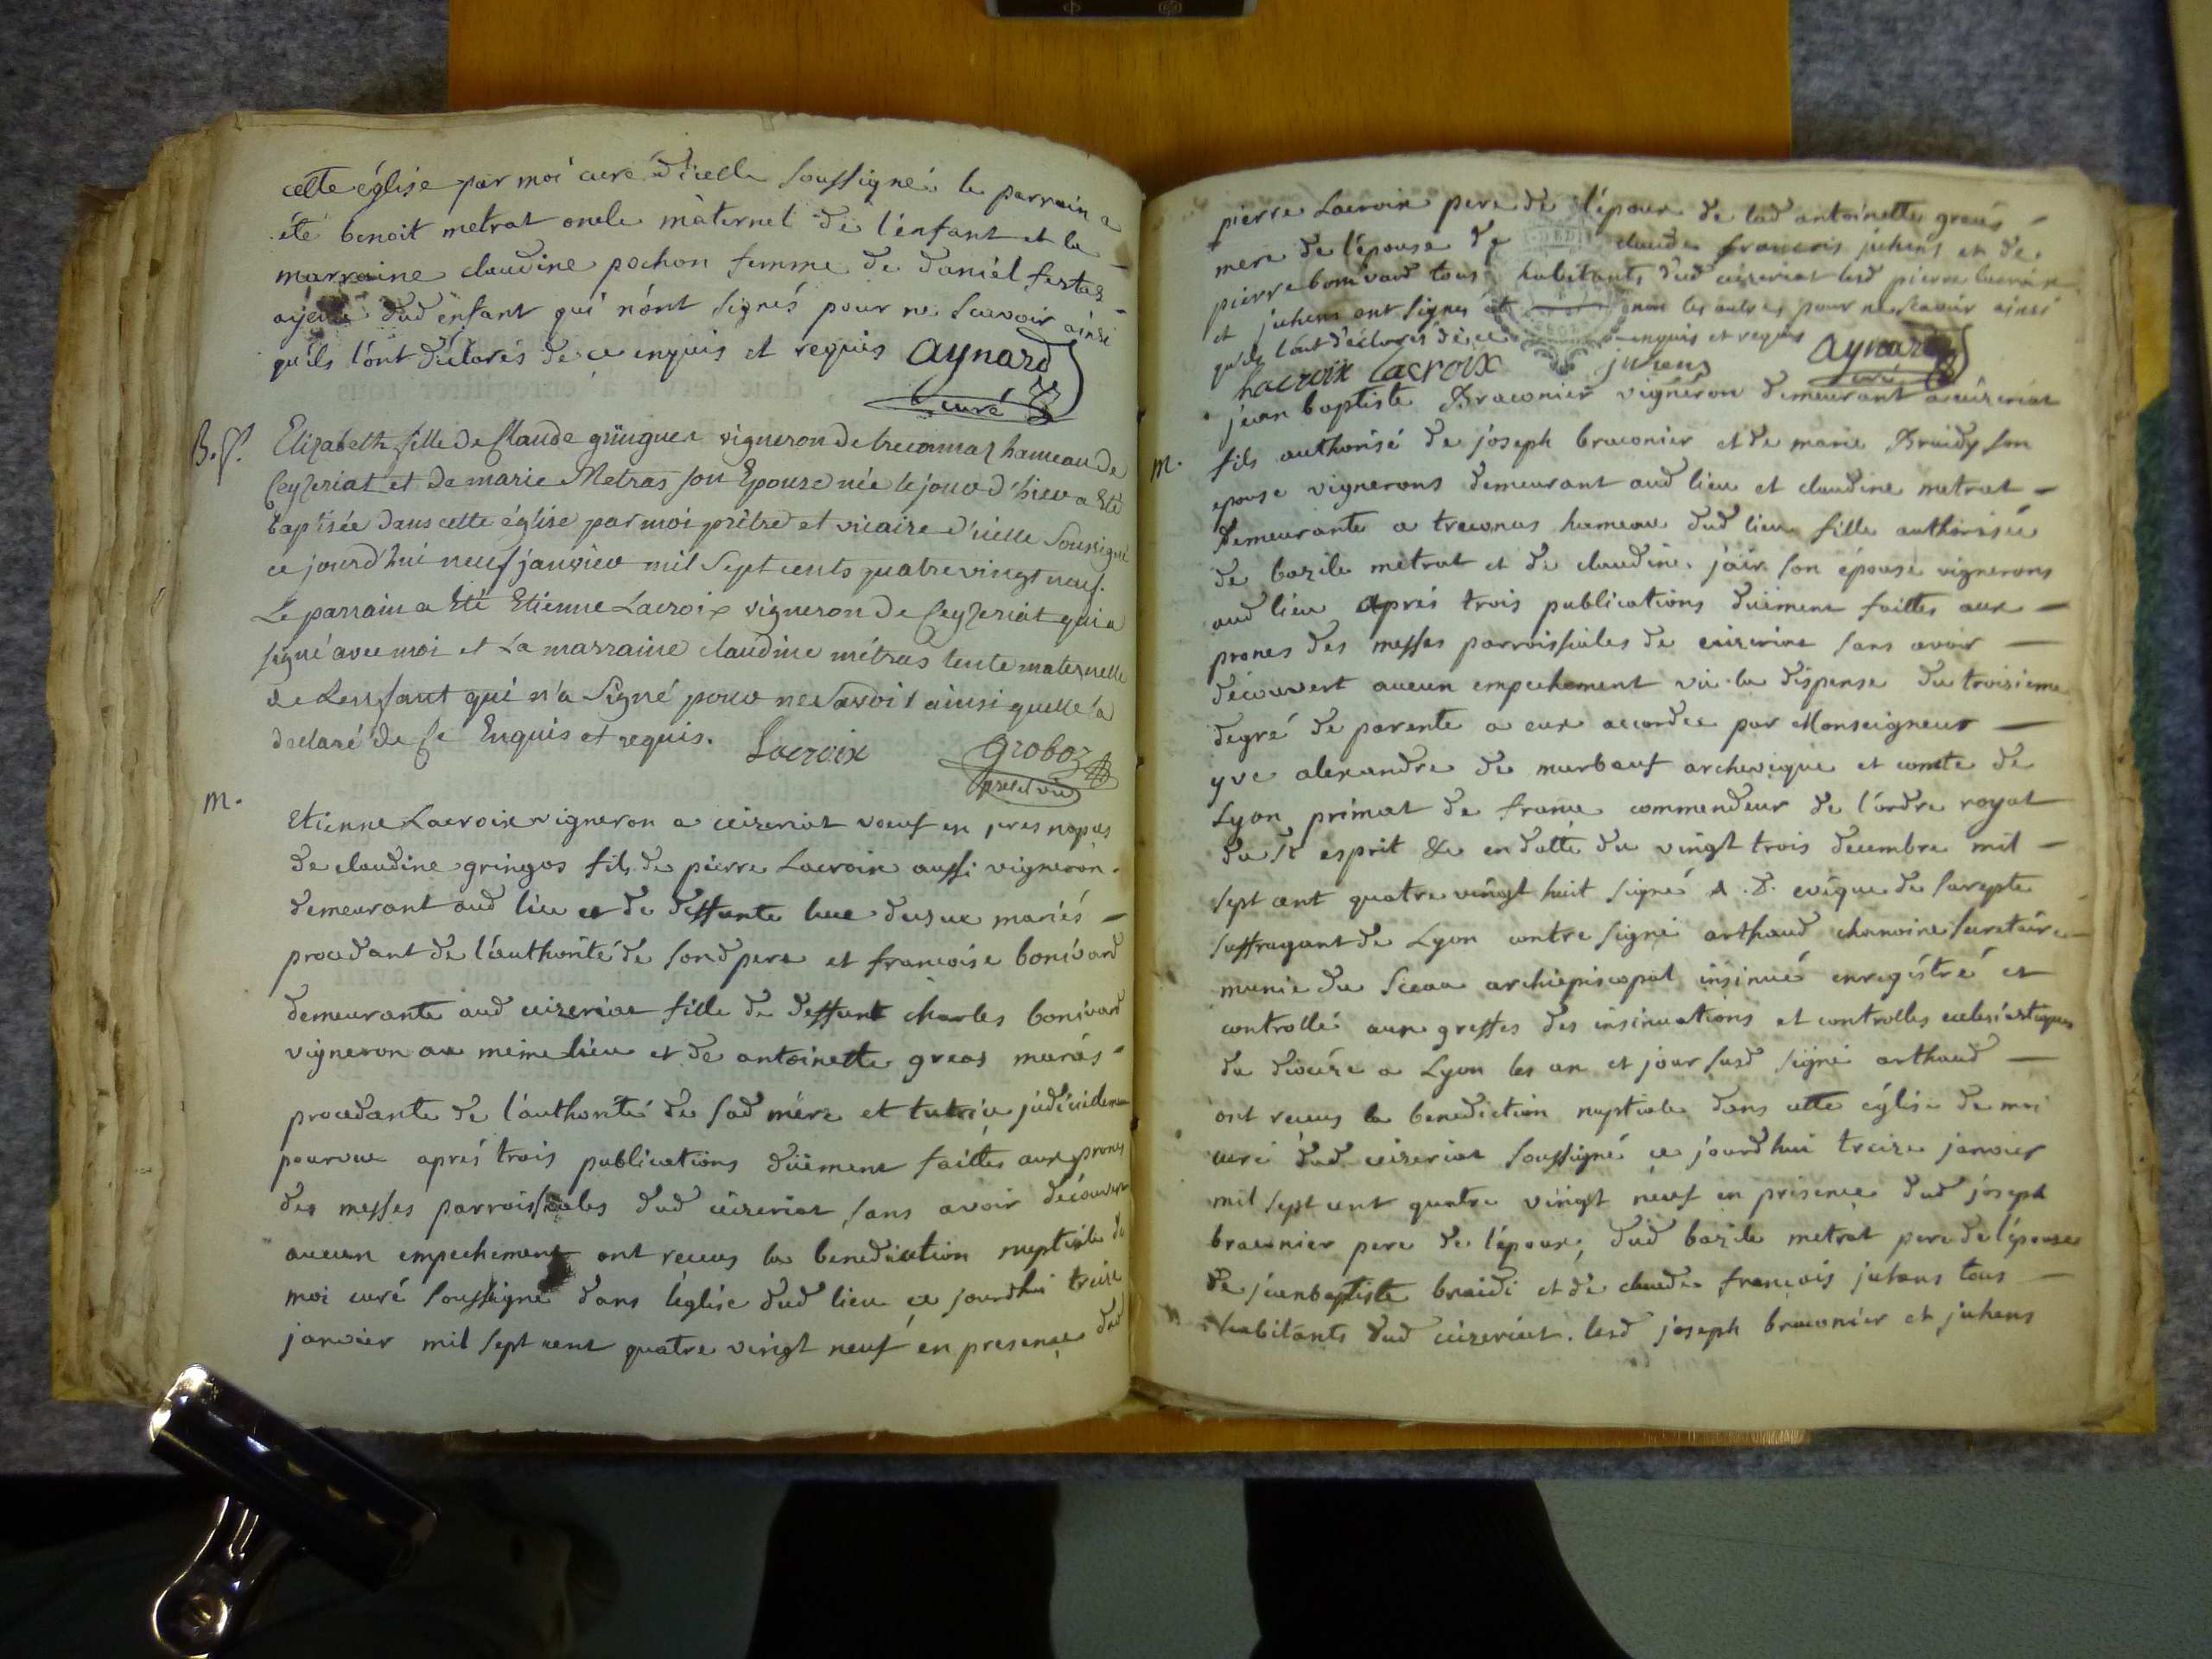 cette église par moi curé d'icelle soussigné le parrain a
été benoit metrat oncle màternel de l'enfant et la
marraine claudine pochon femme de daniel festas
ayeule dud enfant qui n'ont signés pour ne scavoir ainsi
qu'ils l'ont déclarés de ce enquis et requis Aynard
curé
B. f. Elizabeth fille de Claude guinguer vigneron de treconnaz hameau de
Ceyzeriat et de marie Metras son Epouse née le jour d'hier a Eté
baptisée dans cette église par moi prêtre et vicaire d'icelle Soussigné
ce jourd'hui neuf janvier mil Sept cents quatre vingt neuf.
Le parrain a Eté Etienne Lacroix vigneron de Ceyzeriat qui a
signé avec moi et La marraine claudine métras tente maternelle
de Lenfant qui n'a Signé pour ne Savoir ainsi quelle la
declaré de Ce Enquis et requis. Lacroix Groboz
pre et vic
m.
Etienne Lacroix vigneron a ceizeriat veuf en pres nopces
de claudine gringos fils de pierre Lacroix aussi vigneron
demeurant aud lieu et de deffunte luce mariés
procedant de l'authorité de sond pere et francoise bonivard
demeurante aud ceizeriat fille de deffunt charles bonivard
vigneron au meme lieu et de antoinette greas mariés
procedante de l'authorité de sad mére et tutrice judiciidemen
pourvue aprés trois publications düement faittes aux prones
des messes parroissiales dud ceizeriat sans avoir découvert
aucun empechement ont recus la benediction nuptiale de
moi curé soussigné dans l'église dud lieu ce jourdhui treize
janvier mil sept cent quatre vingt neuf en presence dud
pierre Lacroix pere de l'épour de lad antoinette greas
mere de l'épouse de claude francois juhens et de
pierre bonivard tous habitants dud ceizeriat lesd pierre lacroix
et juhens ont signés et non les autres pour ne scavoir ainsi
qu'ils l'ont déclarés de ce enquis et requis
Lacroix Lacroix juhens Aynard
curé
jean baptiste Braconier vigneron demeurant a ceizeriat
m. fils authorisé de joseph braconier et de marie Braidy son
epouse vignerons demeurant aud lieu et claudine metrat
demeurante a treconas hameau dud lieu fille authorisée
de bazile metrat et de claudine jair son épouse vignerons
aud lieu aprés trois publications düement faittes aux
prones des messes parroissiales de ceizeriat sans avoir
découvert aucun empechement vü la dispense du troisieme
degré de parenté a eux accordée par Monseigneur
yve alexandre de marbeuf archevêque et comte de
Lyon primat de france commendeur de l'ordre royal
du st esprit &c en datte du vingt trois decembre mil
sept cent quatre vingt huit signé d. evêque de sarepte
suffragant de Lyon contre signé arthaud chanoine secretaire
munie du sceau archiepiscopal insinué enregistré et
controllé aux greffes des insinuations et controlles eclesiastiques
du diocéze a Lyon les an et jour susd signé arthaud
ont recus la benediction nuptiale dans cette église de moi
curé dud ceizeriat soussigné ce jourdhui treize janvier
mil sept cent quatre vingt neuf en présence dud joseph
braconier pere de l'époux, dud bazile metrat pere de l'épouse
de jeanbaptiste braidi et de claude françois juhens tous
habitants dud ceizeriat. lesd joseph braconier et juhens